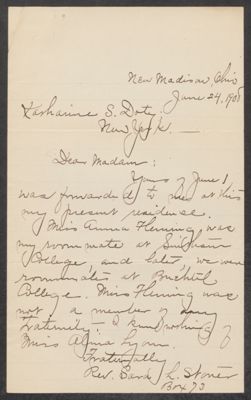 New Madison, Ohio
June 24, 1908
Katharine S. Doty,
New York. —
Dear Madam:
Yours of June 1
was forwarded to me at this
my present residence.
Miss Anna Fleming was
my roommate at
College, and later we were
roommates at Buchtel
College. Miss Fleming was
not a member of any
fraternity. I know nothing of
Miss Alma Lyon.
Fraternally
Rev. Sara L. Stoner
Box 73